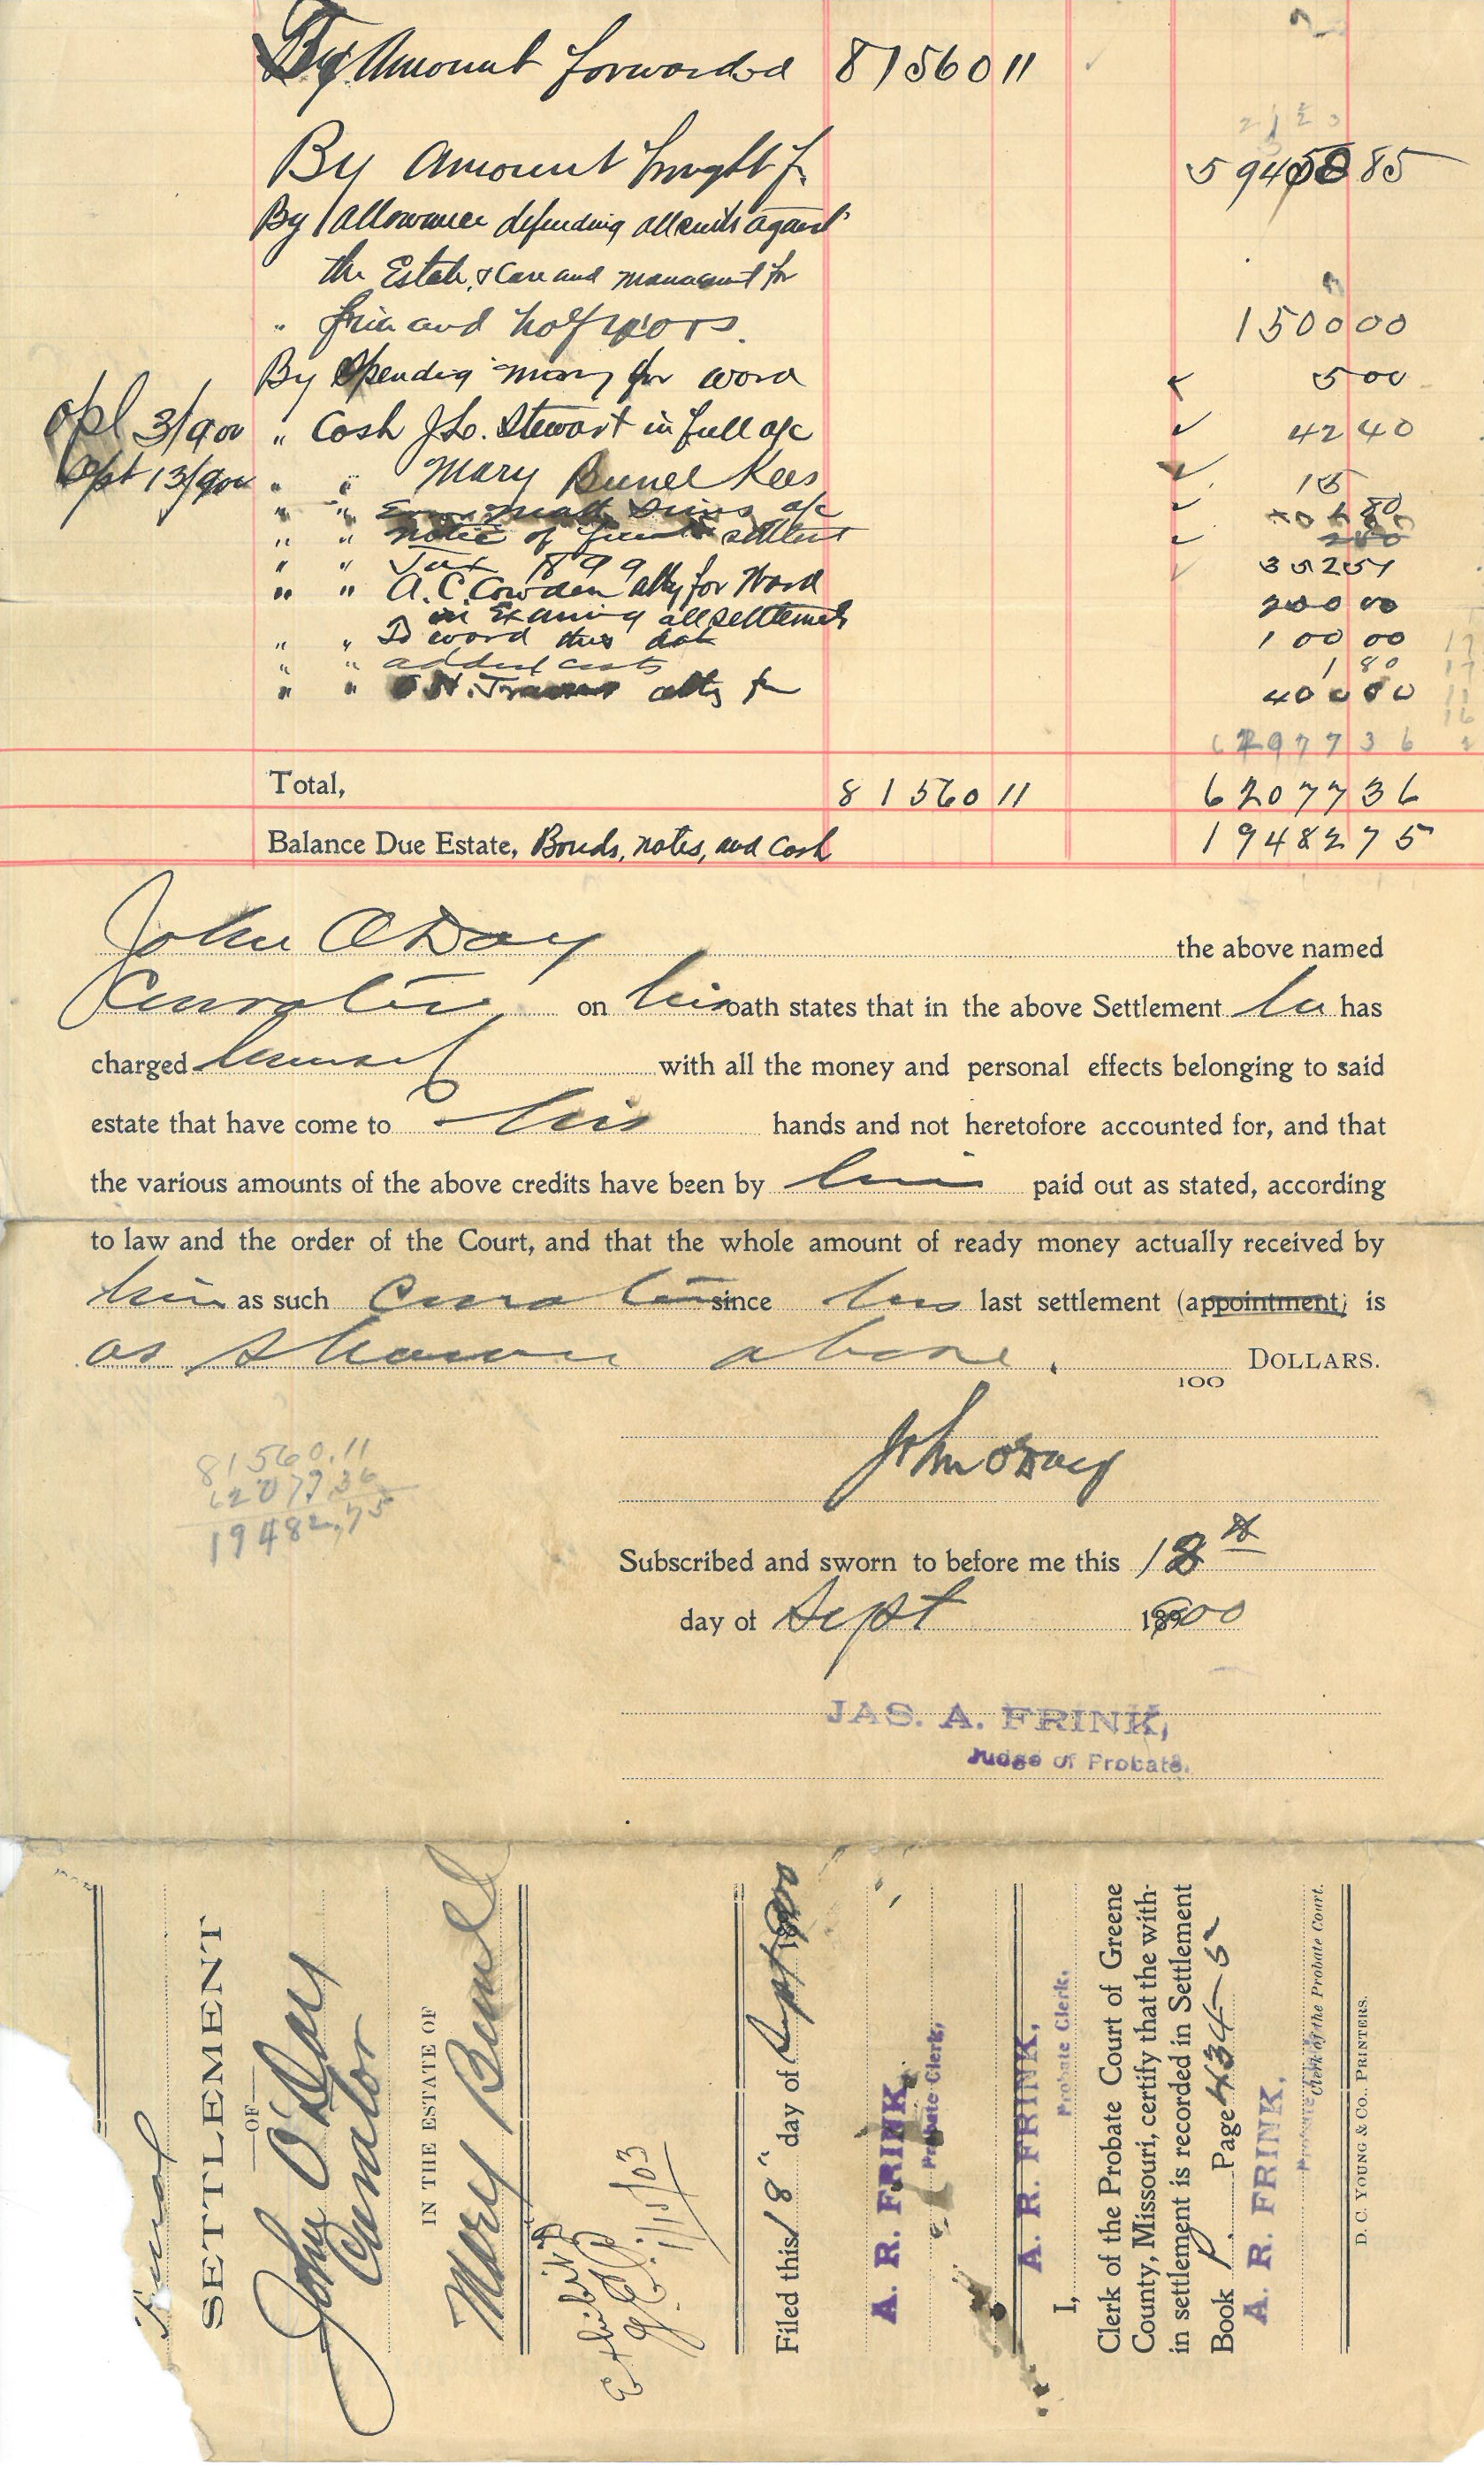 By Amount forwarded 81560 11
By Amount brought f. 59450 85
By allowance defending all suits against
the Estate, & Care and management for
" and half years. 1500 00
By Spending money for word 5 00
Apl 3/900 " Cash J Lo. Stewart in full a/c 42 40
Apt 13/900 " " Mary Bunel Kees 15
" " a/c 80
" " notice of settlement
" " Tax 1899 352 51
" " A. C. Cowden atty for Word 200 00
in Examing all settlements
" " To word this date 100 00
" " added costs 1 80
" " atty for 400 00
62977 36
Total, 81560 11 62077 36
Balance Due Estate, Bonds, notes, and Cash 19482 75
John O'Day the above named
Curator on his oath states that in the above Settlement he has
charged himself with all the money and personal effects belonging to said
estate that have come to his hands and not heretofore accounted for, and that
the various amounts of the above credits have been by him paid out as stated, according
to law and the order of the Court, and that the whole amount of ready money actually received by
him as such Curator since his last settlement (appointment) is
as shown above. 100 DOLLARS.
81560.11
62077 36
19482,75
John O'Day
Subscribed and sworn to before me this 18th
day of Sept 1900
JAS. A. FRINK,
Judge of Probate.
Final
SETTLEMENT
—OF—
John O'Day
Curator
IN THE ESTATE OF
Mary Bunel
Exhibit B
1/15/03
Filed this 18" day of Sept 1900
A. R. FRINK,
Probate Clerk,
A. R. FRINK,
Probate Clerk.
I,
Clerk of the Probate Court of Greene
County, Missouri, certify that the with-
in settlement is recorded in Settlement
Book P. Page 434-5
A. R. FRINK,
Clerk of the Probate Court.
D. C. YOUNG & CO., PRINTERS.